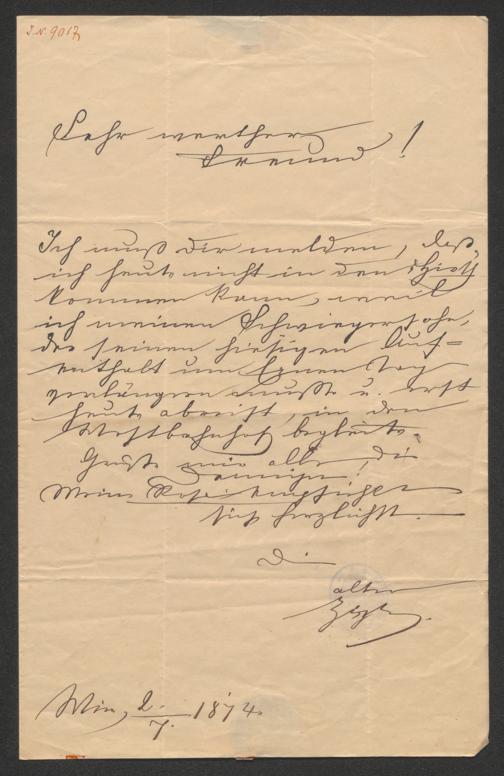 I.N. 9017
Sehr werther
Freund!
Ich muß Dir melden, daß
ich heute nicht in den
kommen kann, weil
ich meinen Schwiegersohn,
der seinen hiesigen Auf=
enthalt um Einen Tag
verlängern mußte u. erst
heute abreist, in den
Westbahnhof begleite.
Grüße mir alle, die
Deinigen!
Meine empfiehlt
sich herzlichst.
Dein
alter
Wien, 2./7. 1874.